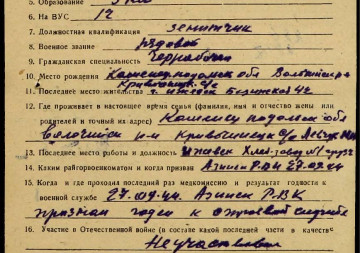 5. Образование
6. На ВУС 12
7. Должностная квалификация зенитчик
8. Военное звание рядовой
9. Гражданская специальность Чернорабоч
10. Место рождения Каменецподольск обл
11. Последнее место жительства г. Ижевск 42
12. Где проживает в настоящее время семья (фамилия, имя и отчество жены или
родителей и точный их адрес) Каменец подольск обл
р-н
13. Последнее место работы и должность Ижевск Хлебзавод №1 грузч
14. Каким райгорвоенкоматом и когда призван Азинск РВК 27.09.44
15. Когда и где проходил последний раз медкомиссию и результат годности к
военной службе 27.09.44. Азинск РВК
признан годен к строевой службе
16. Участие в Отечественной войне (в составе какой последней части в качестве
Не участвовал